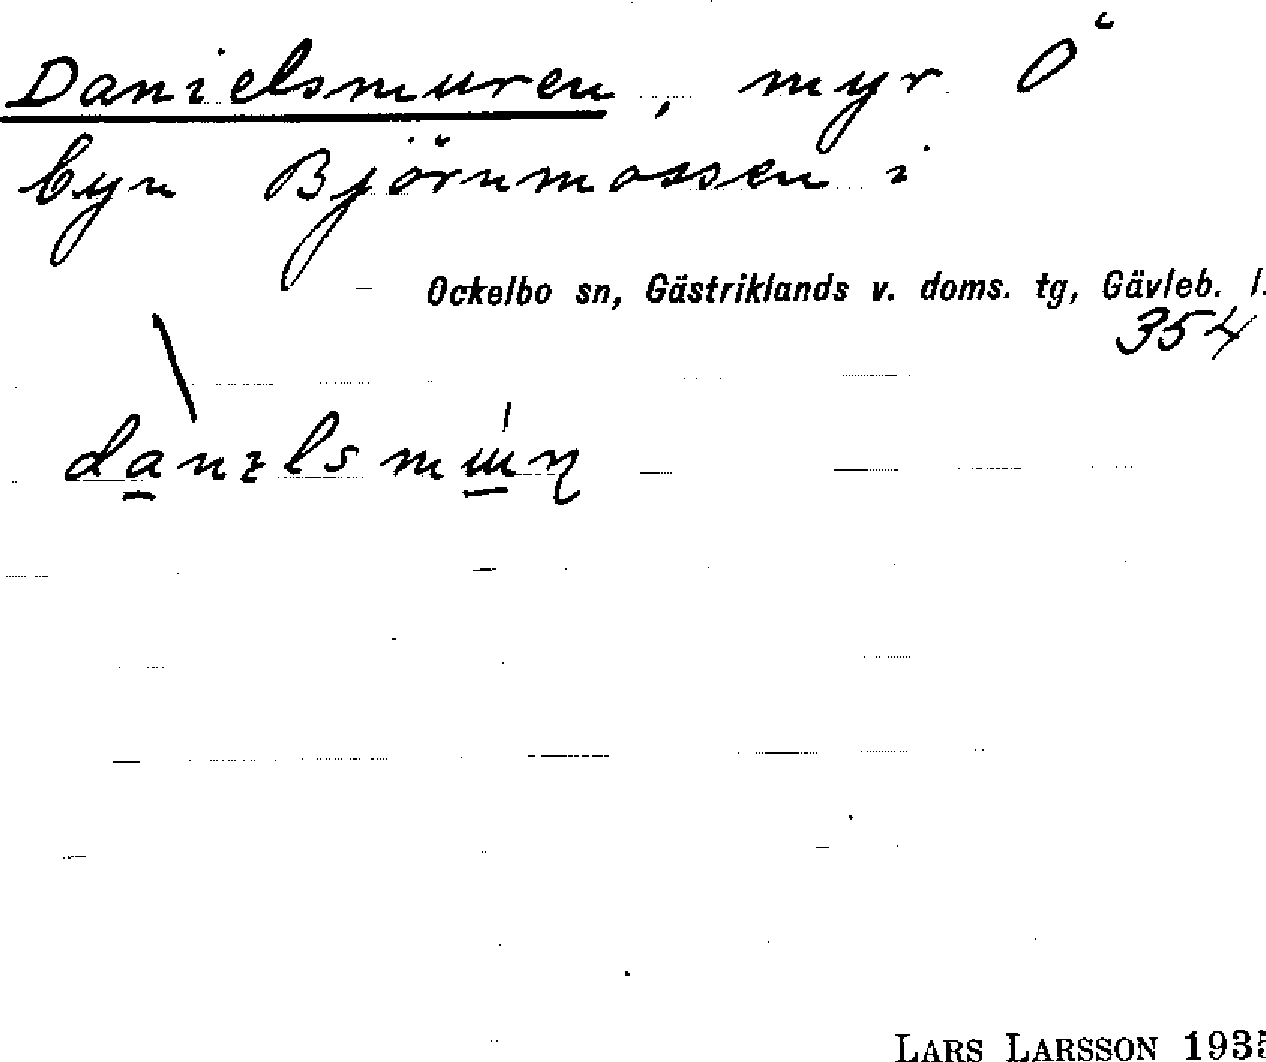 Danielsmuren, myr Ö
byn Björnmossen i
Ockelbo sn, Gästriklands v. doms. tg, Gävleb. l.
354
LARS LARSSON 1935